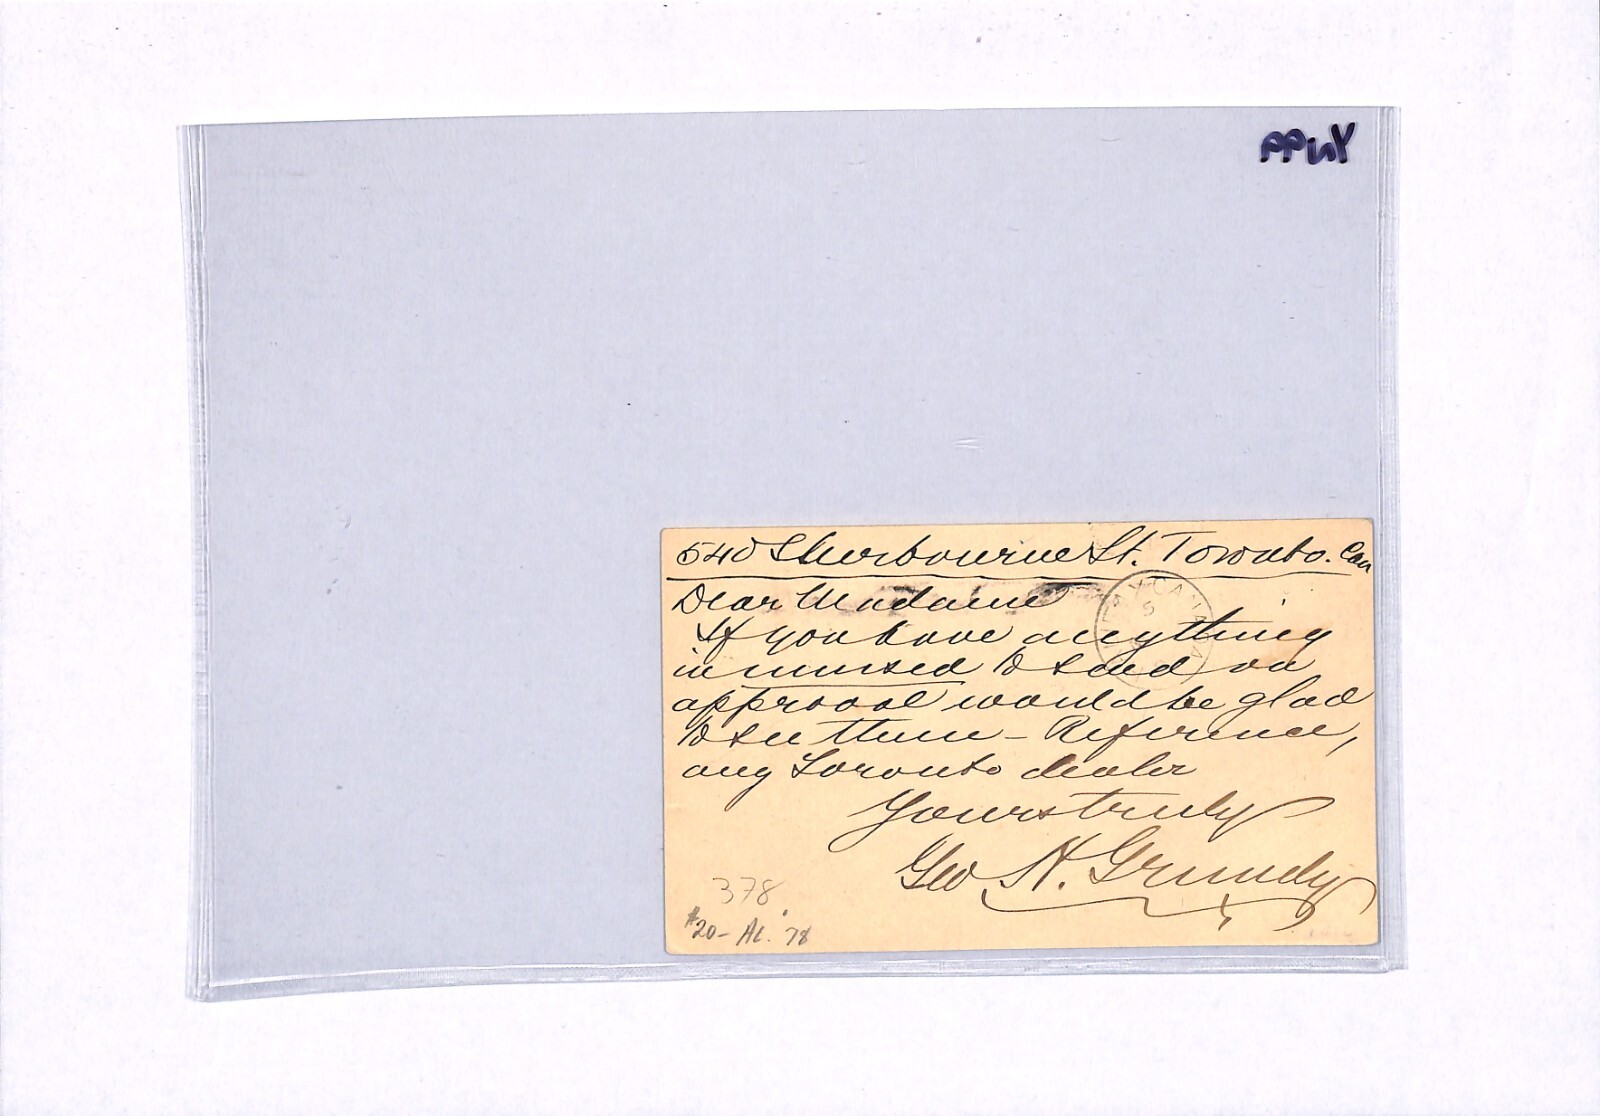 540 Sherbourne St. Toronto. Can
Dear Madame
If you have anything
in unused to send on
approval would be glad
to see them – Reference,
any Toronto dealer
Yours truly
Geo H. Grundy
378
$20– '78